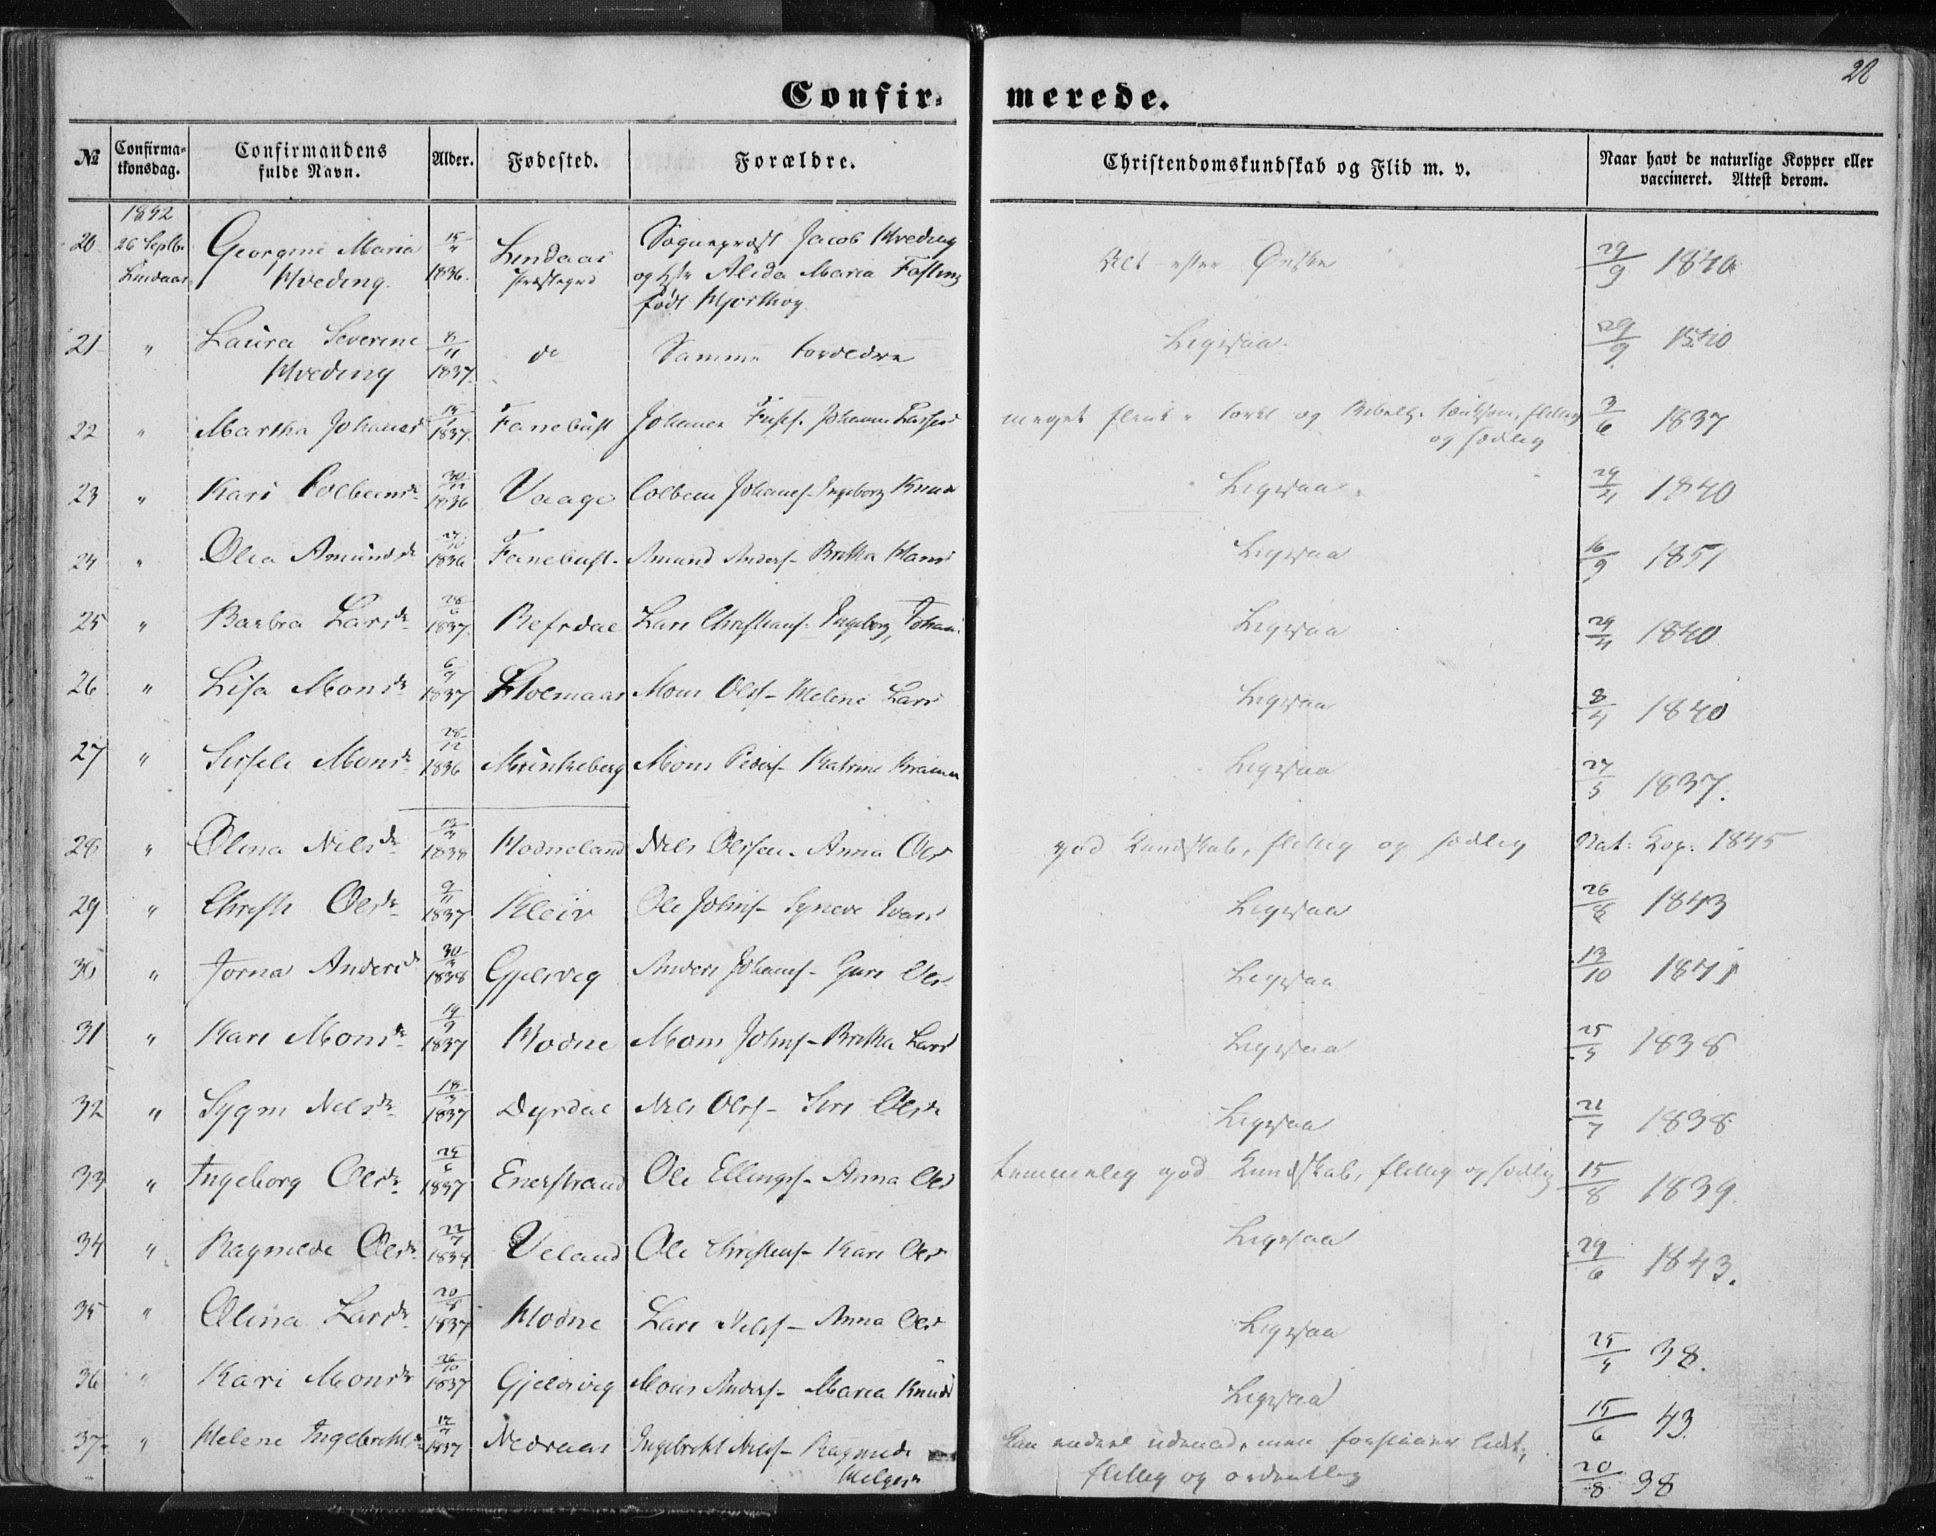 28
Confir- merede.
№ Confirma-tionsdag. Confirmandens fulde Navn. Alder. Fødested. Forældre. Christendomskundskab og Flid m. v. Naar havt de naturlige Kopper eller vaccineret. Attest derom.
1852
20 26 Septbr Lindaas Georgine Maria Hveding 15/4 1836. Lindaas Præstegrd Sognepræst Jacob Hveding og Alida Maria Fasting født Hjorthoy Alt efter Ønske 29/9 1840
21 " Laura Severine Hveding 11 1837. do Samme Forældre Ligesaa. 29/9 1840
22 " Martha Johanes 1837. Fanebust Johanes meget flink i og flittig og sædelig 3/6 1837
23 " Kari Colbeensdr 30/12 1836 Vaage Colbeen Johanes- Ingeborg Knuds Ligesaa 29/4 1840
24 " Olia Amundsdr 1836 Fanebust Amund Anders- Britha Hans Ligesaa 16/9 1851
25 " Barbra Larsdr 28/6 1837. Refsdal Lars Christians- Ingeborg Johan Ligesaa 29/4 1840
26 " Lisa Monsdr 6/9 1837 Holmaas Mons Ols- Helene Lars Ligesaa 8/4 1840
27 " Sissele Monsdr 28/12 1836 Munkeberg Mons Peders- Katrine Ligesaa 27/5 1837.
28 " Olina Nilsdr 1838 Hodneland Nils Olsen- Anna Ols god Kundskab, flittig og sædlig Nat: Kop: 1845
29 " Christi Olsdr 1837 Kleiv Ole Johns- Syneve Ivars Ligesaa 26/8 1843
30 " Jorna Andersdr 30/3 1838 Gjelsvig Anders Johans- Guri Ols Ligesaa 13/10 1841
31 " Kari Monsdr 1837 Hodne Mons Johns- Britha Lars Ligesaa 25/5 1838
32 " Sygni Nelsdr 18/3 1837 Dyrdal Nels Ols- Siri Olsdr Ligesaa 21/7 1838
33 " Ingeborg Olsdr 1837 Enerstrand Ole Ellings- Anna Ols temmelig god Kundskab, flittig og sædlig 15/8 1839
34 " Ragnilde Olsdr 22/7 1838 Veland Ole Christens- Kari Ols Ligesaa 29/6 1843.
35 " Olina Larsdr 20/5 1837 Hodne Lars Nels- Anna Ols Ligesaa 25/5 38.
36 " Kari Monsdr 26/10 1837 Gjelsvig Mons Anders- Maria Knuds Ligesaa 15/6 43
37 " Helene Ingebrektsdr 1837 Nedraas Ingebrekt Nels- Ragnilde Helgesdr Kan endeel udenad, men forstaaer lidt, flittig og ordentlig 20/8 38